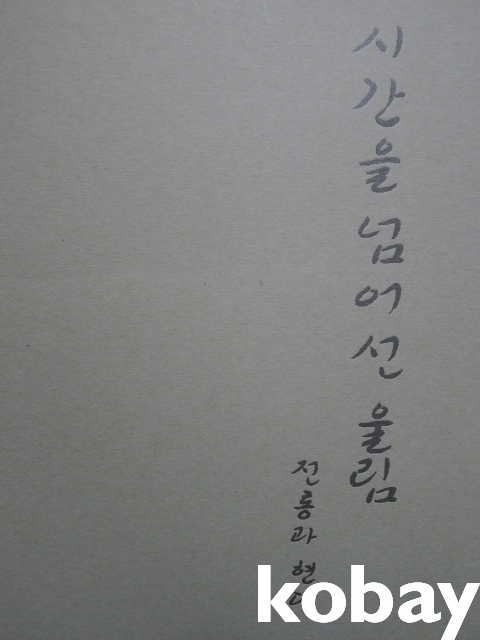 시간을 넘어선 울림
전통과
kobay